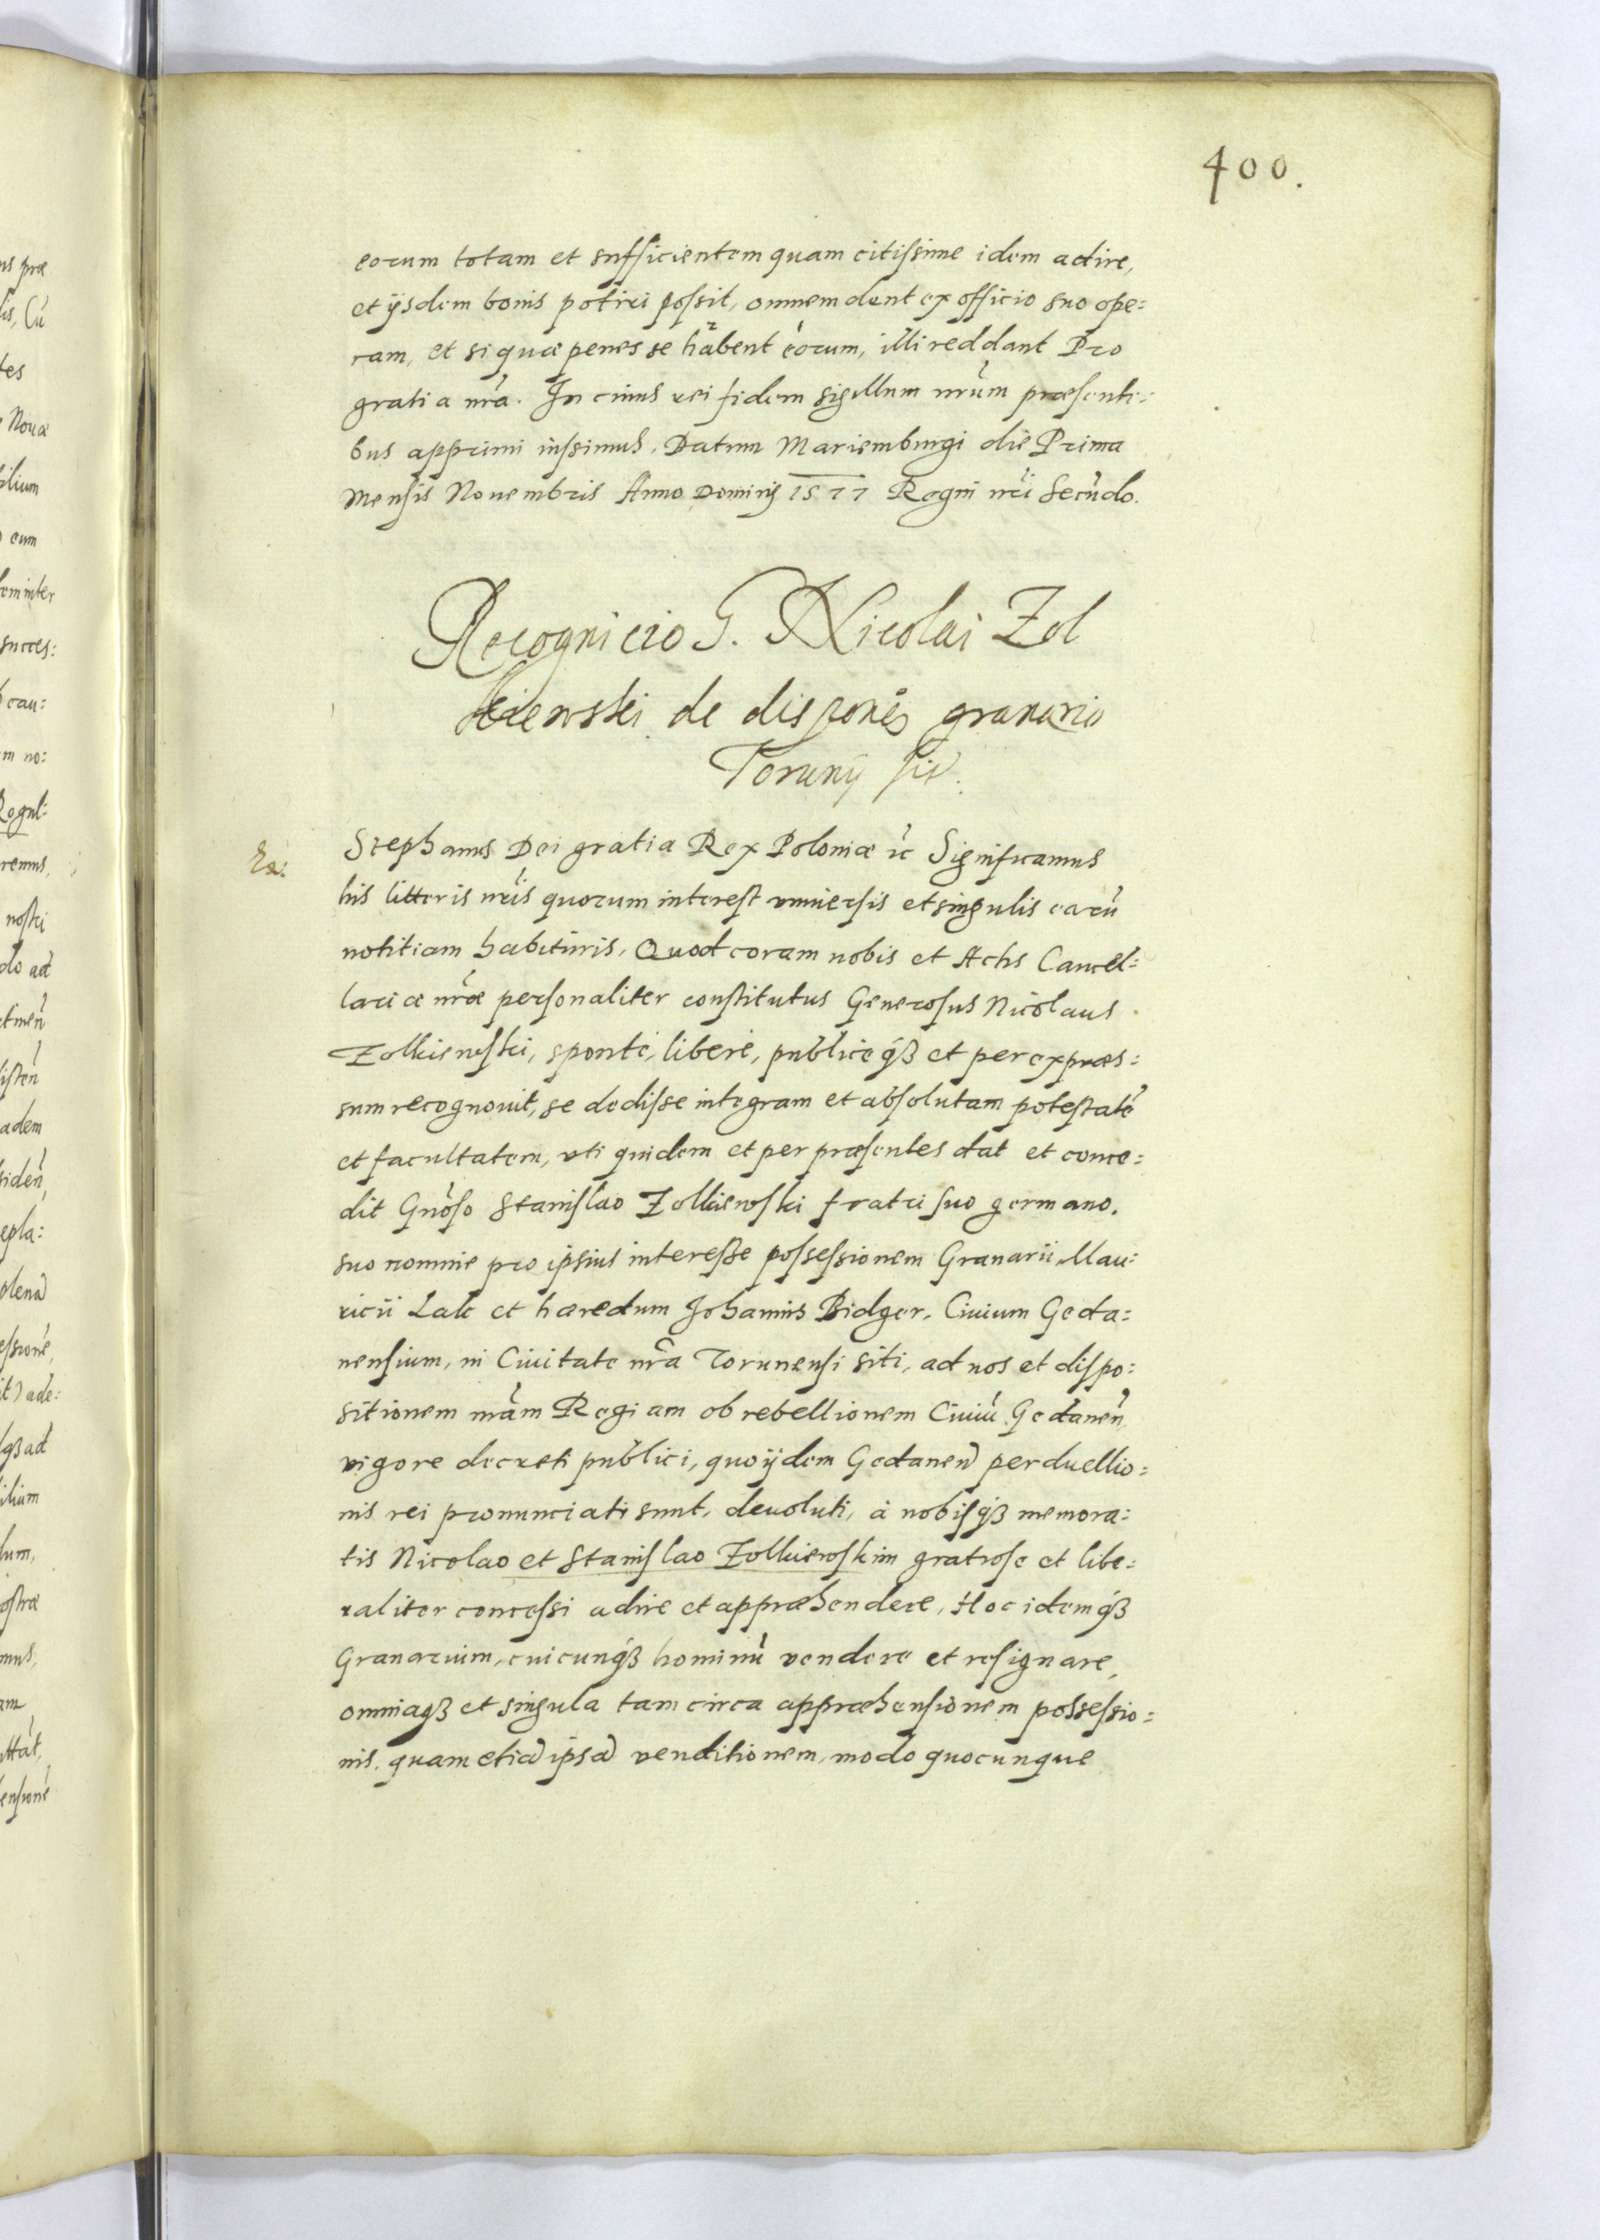 400.
eorum totam et sufficientem quam citissime idem adire,
et ijsdem bonis potiri possit, omnem dent ex officio suo ope:
ram, et si quæ penes se habent eorum, illi reddant Pro
gratia nr̃a. In cuius rei fidem sigillum nr̃um præsenti:
bus apprimi iussimus. Datum Mariemburgi die Prima
Mensis Nouembris Anno Domini 1577 Regni nr̃i Secũdo.
Recognicio G. Nicolai Zol
kiewski de disponẽ granario
Torunÿ sit.
Stephanus Dei gratia Rex Poloniæ ꝛc Significamus
his litteris nr̃is quorum interest vniuersis et singulis earũ
notitiam habituris, Quod coram nobis et Actis Cancel:
lariæ nr̃æ personaliter constitutus Generosus Nicolaus
Zolkiewski, sponte, libere, publice qȝ et per expræs:
sum recognouit, se dedisse integram et absolutam potestatẽ
et facultatem, vti quidem et per præsentes dat et conce:
dit Gnõso Stanislao Zolkiewski fratri suo germano.
suo nomine pro ipsius interesse possessionem Granarii Mau:
ricii Lak et hæredum Johannis Bidger, Ciuium Geda:
nensium, in Ciuitate nr̃a Torunensi siti, ad nos et dispo:
sitionem nr̃am Regiam ob rebellionem Ciuiũ Gedaneñ
vigore decreti publici, quo ijdem Gedaneñ perduellio:
nis rei pronunciati sunt, deuoluti, à nobisqȝ memora:
tis Nicolao et Stanislao Zolkiewskim gratiose et libe:
raliter concessi adire et appræhendere, Hoc idemqȝ
Granarium, cuicunqȝ hominũ vendere et resignare,
omniaqȝ et singula tam circa appræhensionem possessio:
nis, quam etiã ipsã venditionem, modo quocunque